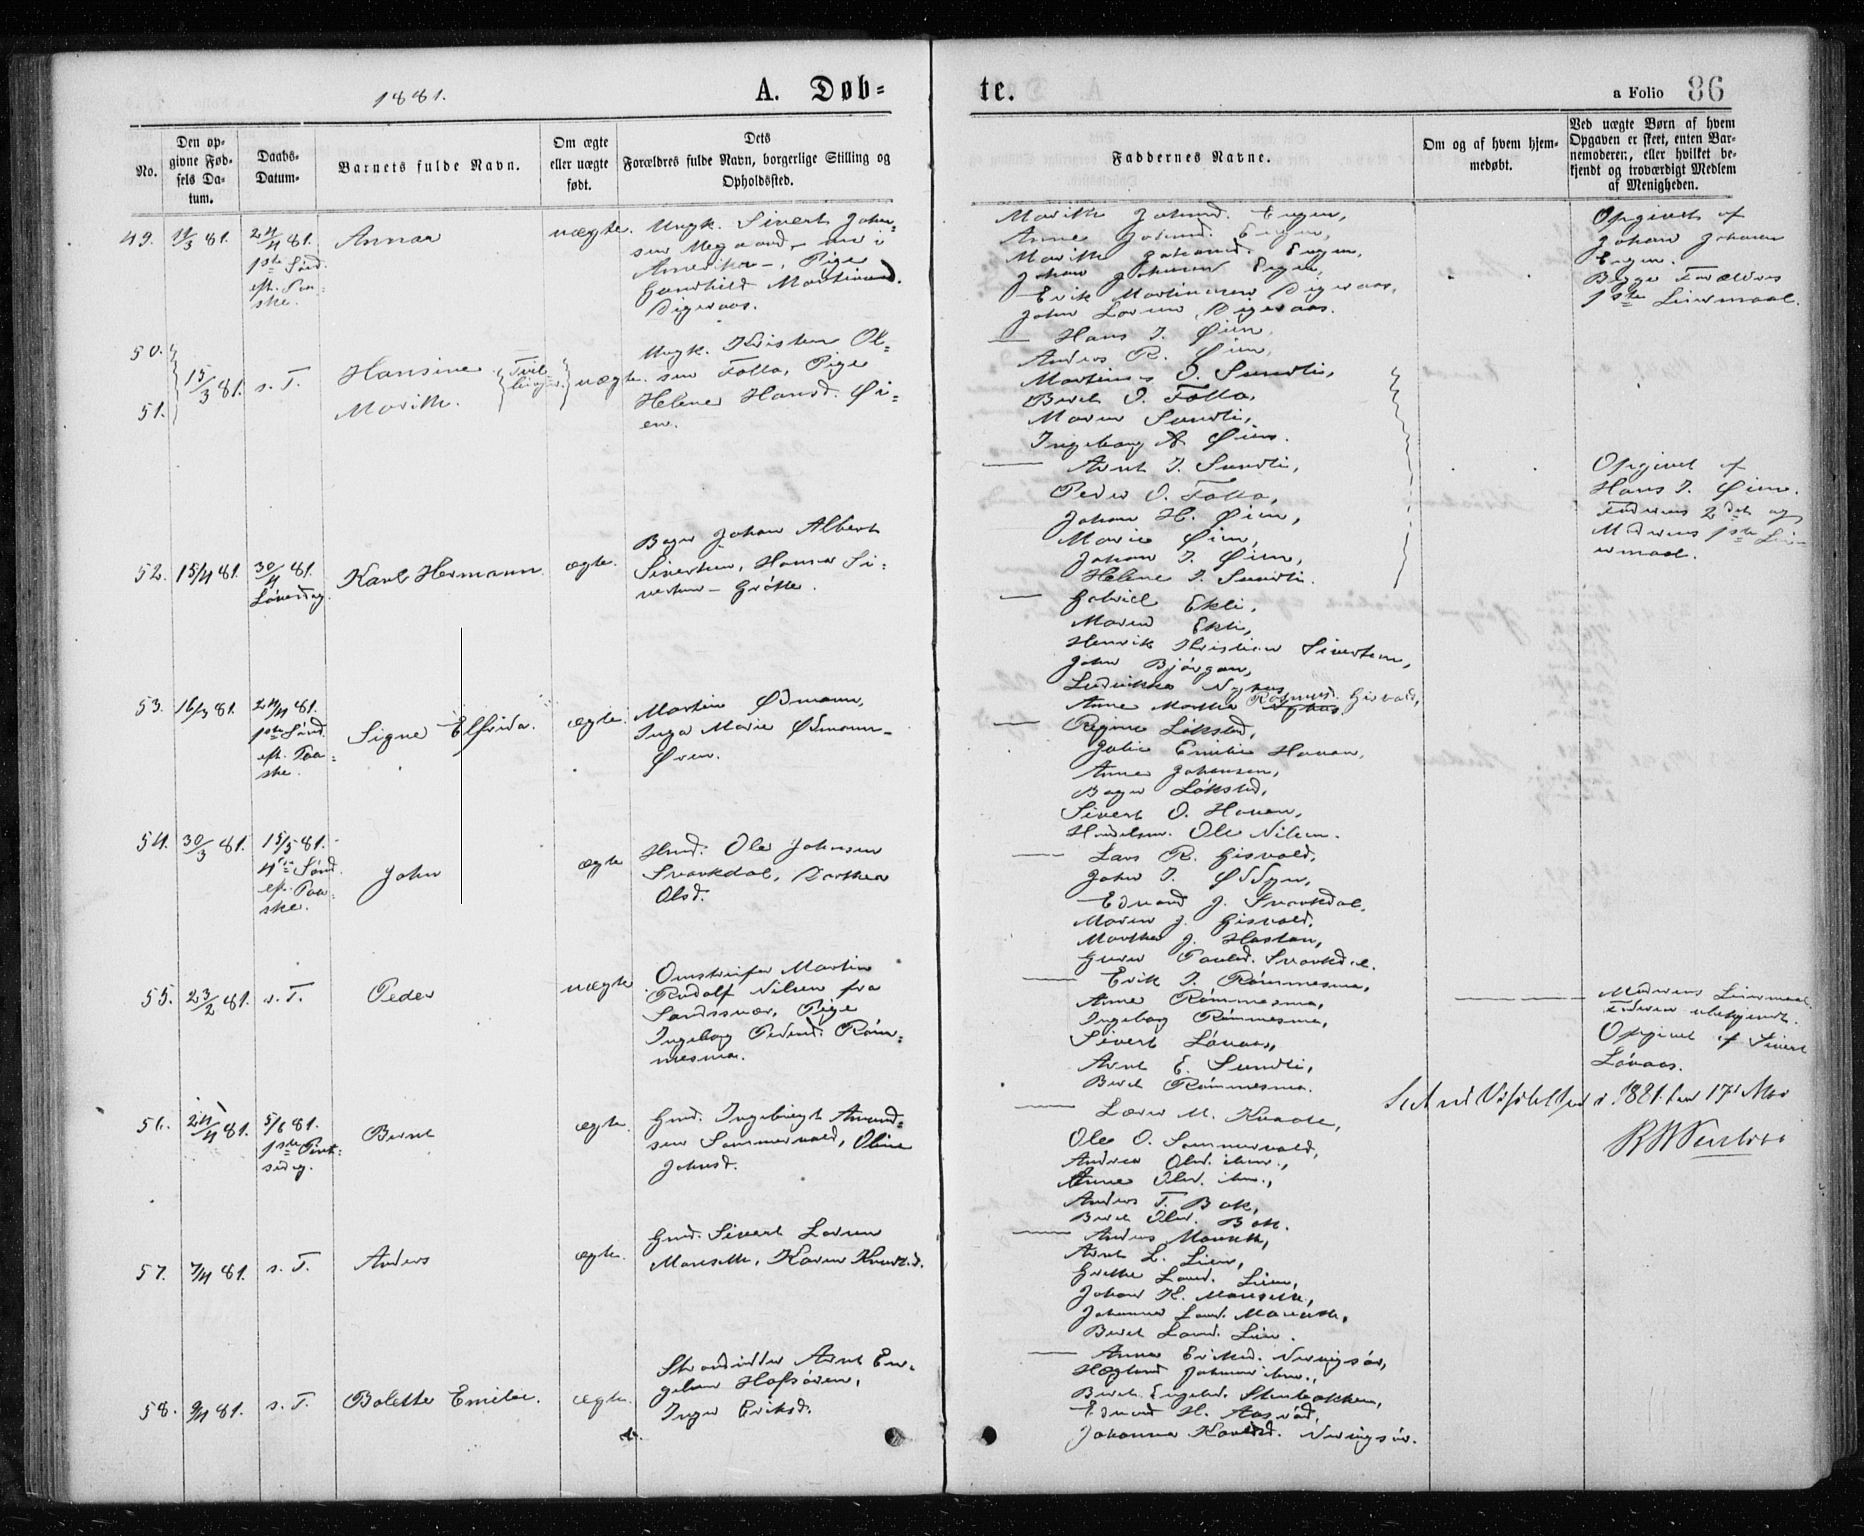 1881.
A. Døb=
te.
a Folio 86
No.
Den op-
givne Fød-
sels Da-
tum.
Daabs-
Datum.
Barnets fulde Navn.
Om ægte
eller uægte
født.
Dets
Forældres fulde Navn, borgerlige Stilling og
Opholdssted.
Faddernes Navne.
Om og af hvem hjem-
medøbt.
Ved uægte Børn af hvem
Opgaven er skeet, enten Bar-
nemoderen, eller hvilket be-
kjendt og troværdigt Medlem
af Menigheden.
49. 11/3 81.
24/4 81.
1ste Sønd.
eft. Paa-
ske.
Annaa
uægte.
Ungk. Sivert Johan-
sen Megaard, nu i
Amerika -, Pige
Gunhild Martinsd.
Digeraas.
Marith Johnsd. Engen,
Anne Johnsd. Engen,
Marith Johansd. Engen,
Johan Johnsen Engen,
Erik Martinsen Digeraas,
John Larsen Digeraas.
Opgivet af
Johan Johnsen
Engen.
Begge Forældres
1ste Leiermaal.
50.
51.
15/3 81. s. T.
Hansine
Marith.
Tvil-
linger
uægte.
Ungk. Kristen Ol-
sen Folla, Pige
Helene Hansd. Øi-
en.
Hans J. Øien,
Anders R. Øien,
Martinus J. Sundli,
Beret O. Folla,
Maren Sundli,
Ingeborg A Øien.
Arnt J. Sundli,
Peder O. Folla,
Johan H. Øien,
Marie Øien,
Johan J. Øien,
Helene J. Sundli.
Opgivet af
Hans J. Øien.
Faderens 2det og
Moderens 1ste Lei-
ermaal.
52. 15/4 81.
30/4 81.
Løverdag
Karl Hermann.
ægte.
Bager Johan Albert
Sivertsen, Hanna Si-
vertsen - Grøtte.
Gabriel Ekli,
Maren Ekli,
Henrik Kristian Sivertsen,
John Bjørgan,
Ludvikka Nyhus
Anne Martha Rasmusd. Gisvold,
53. 16/3 81.
24/4 81.
1ste Sønd.
eft. Paa-
ske.
Signe Elfrida.
ægte.
Martin Ødmann,
Inga Marie Ødmann-
Øren.
Regine Løksted,
Julie Emilie Hovan,
Anne Johansen,
Bager Løksted,
Sivert O. Hovan,
Handelsm. Ole Nilsen.
54. 30/3 81.
15/5 81.
4de Sønd.
eft. Paa-
ske.
John
ægte
Hmd. Ole Johnsen
Svorkdal, Dorthea
Olsd.
Lars R. Gisvold,
John J. Ødegn,
Edvard J. Svorkdal,
Maren J. Gisvold,
Marthe J. Hostan,
Guru Paulsd. Svorkdal.
55. 23/2 81. s. T.
Peder
uægte
Omstreifer Martin
Rudolf Nilsen fra
Sandssvær, Pige
Ingebog Pedersd. Røm-
mesmo.
Erik J. Rømmesmo,
Anne Rømmesmo,
Ingebog Rømmesmo,
Sivert Løvaas,
Arnt E. Sundli,
Beret Rømmesmo.
Moderens Leiermaal
Faderen ubekjendt.
Opgivet af Sivert
Løvaas.
56. 24/4 81.
5/6 81.
1ste Pint-
sedag.
Bernt
ægte.
Gmd. Ingebrigt Amund-
sen Sommervold, Oline
Johnsd.
Lars M. Kvaale,
Ole O. Sommervold,
Andrea Olsd. ibm.,
Anne Olsd. ibm.,
Anders T. Bak,
Beret Olsd. Bak.
Seet ved Visitatsen i 1881. den 17de Mai
57. 7/4 81. s. T.
Anders
ægte.
Gmd. Sivert Larsen
Monseth, Karen Knudsd.
Anders Monseth,
Arnt L. Lien,
Grethe Larsd. Lien,
Johan H. Monseth,
Johanna Larsd. Monseth,
Beret Larsd. Lien.
58. 9/4 81. s. T.
Bolette Emilie.
ægte.
Strandsidder Arnt En-
gelsen Hofsøren,
Inger Eriksd.
Anne Eriksd. Neringsør,
Haglund Johnsen ibm.,
Beret Engelsd. Stenbakken,
Edvard H. Aasvød,
Johanna Karlsd. Neringsør.